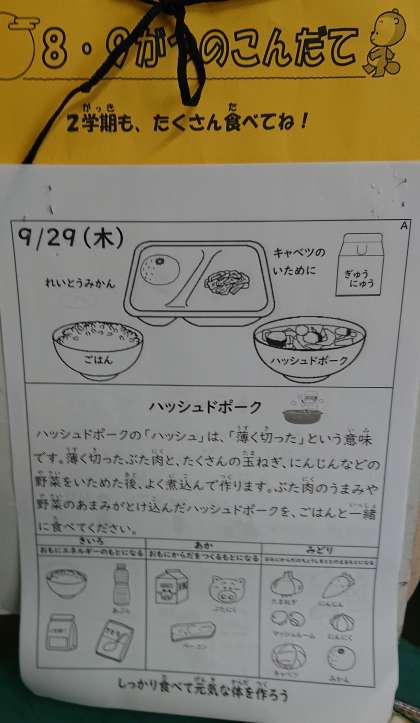 8・9がつのこんだて
2学期も、たくさん食べてね！
がっき た
A
9/29(木)
れいとうみかん
キャベツの
いために
ぎゅう
にゅう
ごはん
ハッシュドポーク
ハッシュドポーク
ハッシュドポークの「ハッシュ」は、「薄く切った」という意味
です。薄く切ったぶた肉と、たくさんの玉ねぎ、にんじんなどの
野菜をいためた後、よく煮込んで作ります。ぶた肉のうまみや
野菜のあまみがとけ込んだハッシュドポークを、ごはんと一緒
に食べてください。
きいろ
おもにエネルギーのもとになる
あか
おもにからだをつくるもとになる
みどり
おもにからだのちょうしをととのえるもとになる
あぶら
ぶたにく
ベーコン
たまねぎ
にんじん
マッシュルーム
にんにく
キャベツ
みかん
しっかり食べて元気な体を作ろう